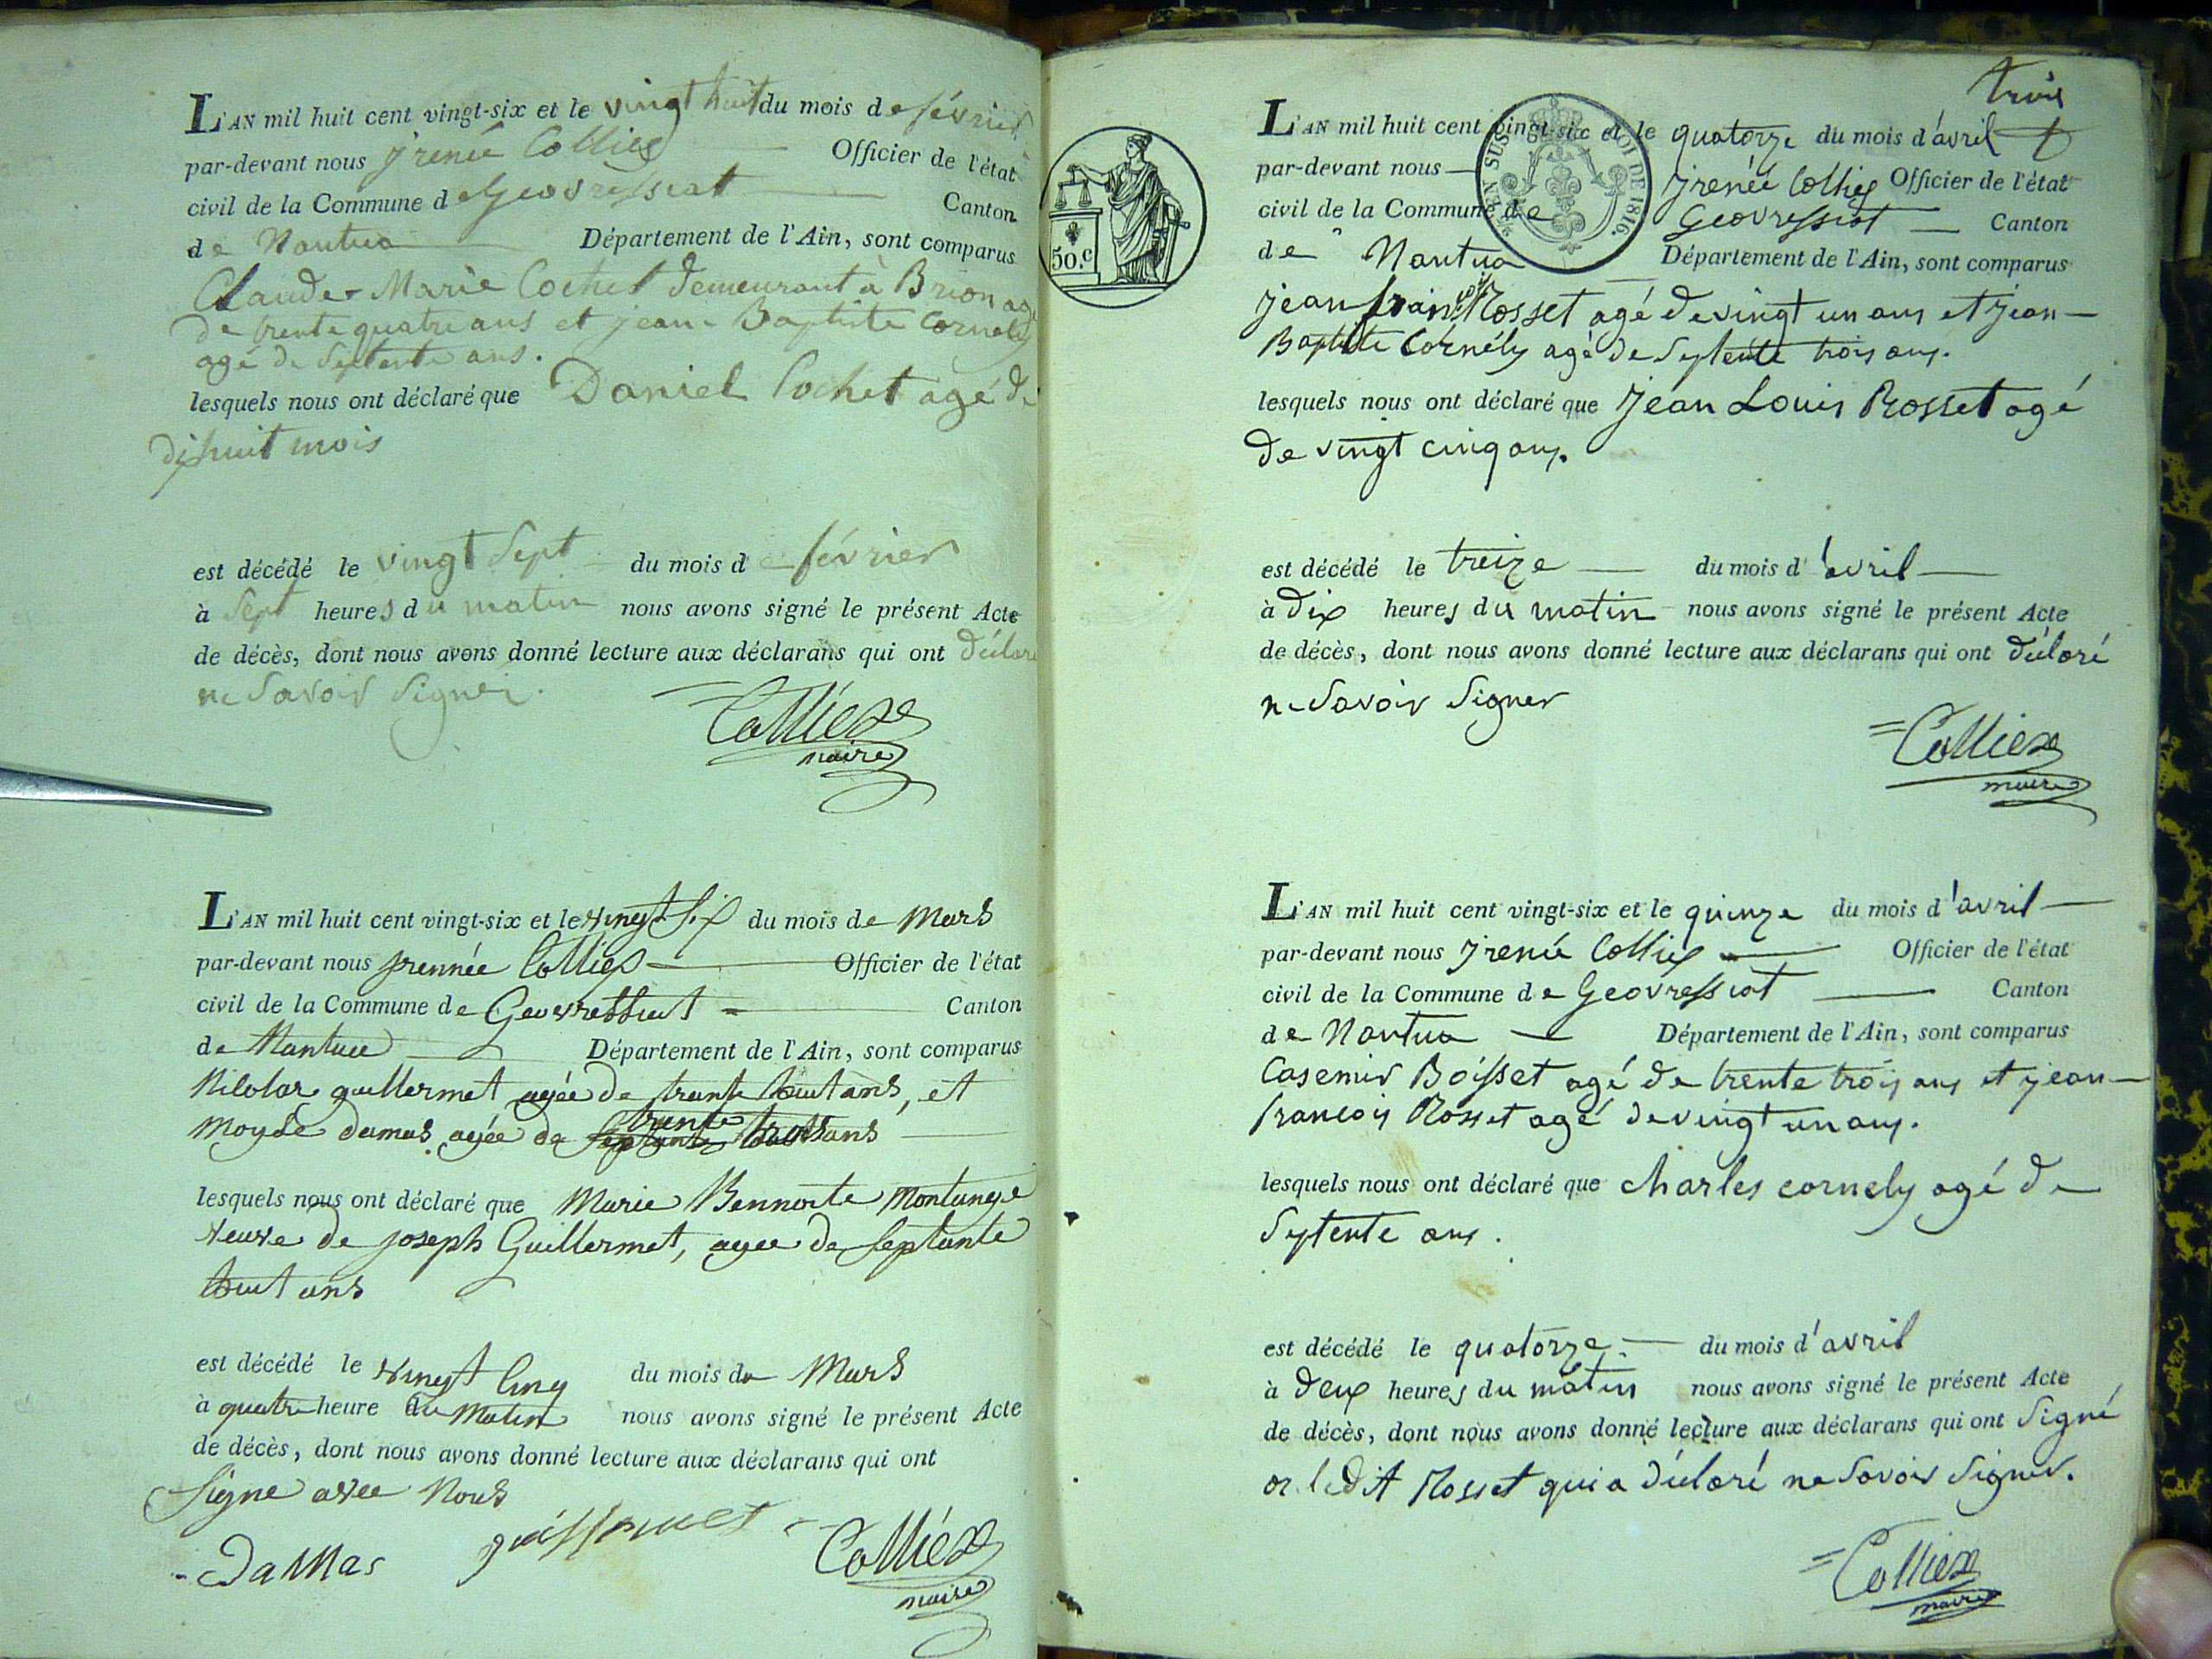 L'AN mil huit cent vingt-six et le vingt huit du mois de février
par-devant nous jrenée Colliex Officier de l'état
civil de la Commune de Geovressiat Canton
de Nantua Département de l'Ain, sont comparus
Claude-Marie Cochet demeurant à Brion agé
de trente quatre ans et jean-Baptiste Cornely
agé de septente ans.
lesquels nous ont déclaré que Daniel Cochet agé de
dixhuit mois
est décédé le vingt sept du mois de février
à sept heures du matin nous avons signé le présent Acte
de décès, dont nous avons donné lecture aux déclarans qui ont déclaré
ne savoir signer.
Colliex
maire
L'AN mil huit cent vingt-six et le vingt six du mois de Mars
par-devant nous jrennée Colliex Officier de l'état
civil de la Commune de Geovressiat Canton
de Nantua Département de l'Ain, sont comparus
Nicolas guillermet agée de trante huit ans, et
Moyse dumas agée de septante trente trois ans
lesquels nous ont déclaré que Marie Bennoite Montange
veuve de joseph Guillermet, agee de septante
huit ans
est décédé le vingt cinq du mois de Mars
à quatre heure du Matin nous avons signé le présent Acte
de décès, dont nous avons donné lecture aux déclarans qui ont
signe avec Nous
DaMas
Colliex
maire
trois
50.c
LOI DE 1816.
L'AN mil huit cent vingt-six et le quatorze du mois d'avril
par-devant nous jrenée Colliex Officier de l'état
civil de la Commune de Geovressiat Canton
de Nantua Département de l'Ain, sont comparus
jean françois Rosset agé de vingt un ans et jean-
Baptiste Cornély agé de septente trois ans.
lesquels nous ont déclaré que Jean Louis Rosset agé
de vingt cinq ans.
est décédé le treize du mois d'avril
à dix heures du matin nous avons signé le présent Acte
de décès, dont nous avons donné lecture aux déclarans qui ont déclaré
ne savoir signer
Colliex
maire
L'AN mil huit cent vingt-six et le quinze du mois d'avril
par-devant nous jrenée Colliex Officier de l'état
civil de la Commune de Geovressiat Canton
de Nantua Département de l'Ain, sont comparus
Casemir Boisset agé de trente trois ans et jean-
francois Rosset agé de vingt un ans.
lesquels nous ont déclaré que charles cornely agé de
septente ans.
est décédé le quatorze du mois d'avril
à deux heures du matin nous avons signé le présent Acte
de décès, dont nous avons donné lecture aux déclarans qui ont signé
or ledit Rosset qui a déclaré ne savoir signer.
Colliex
maire